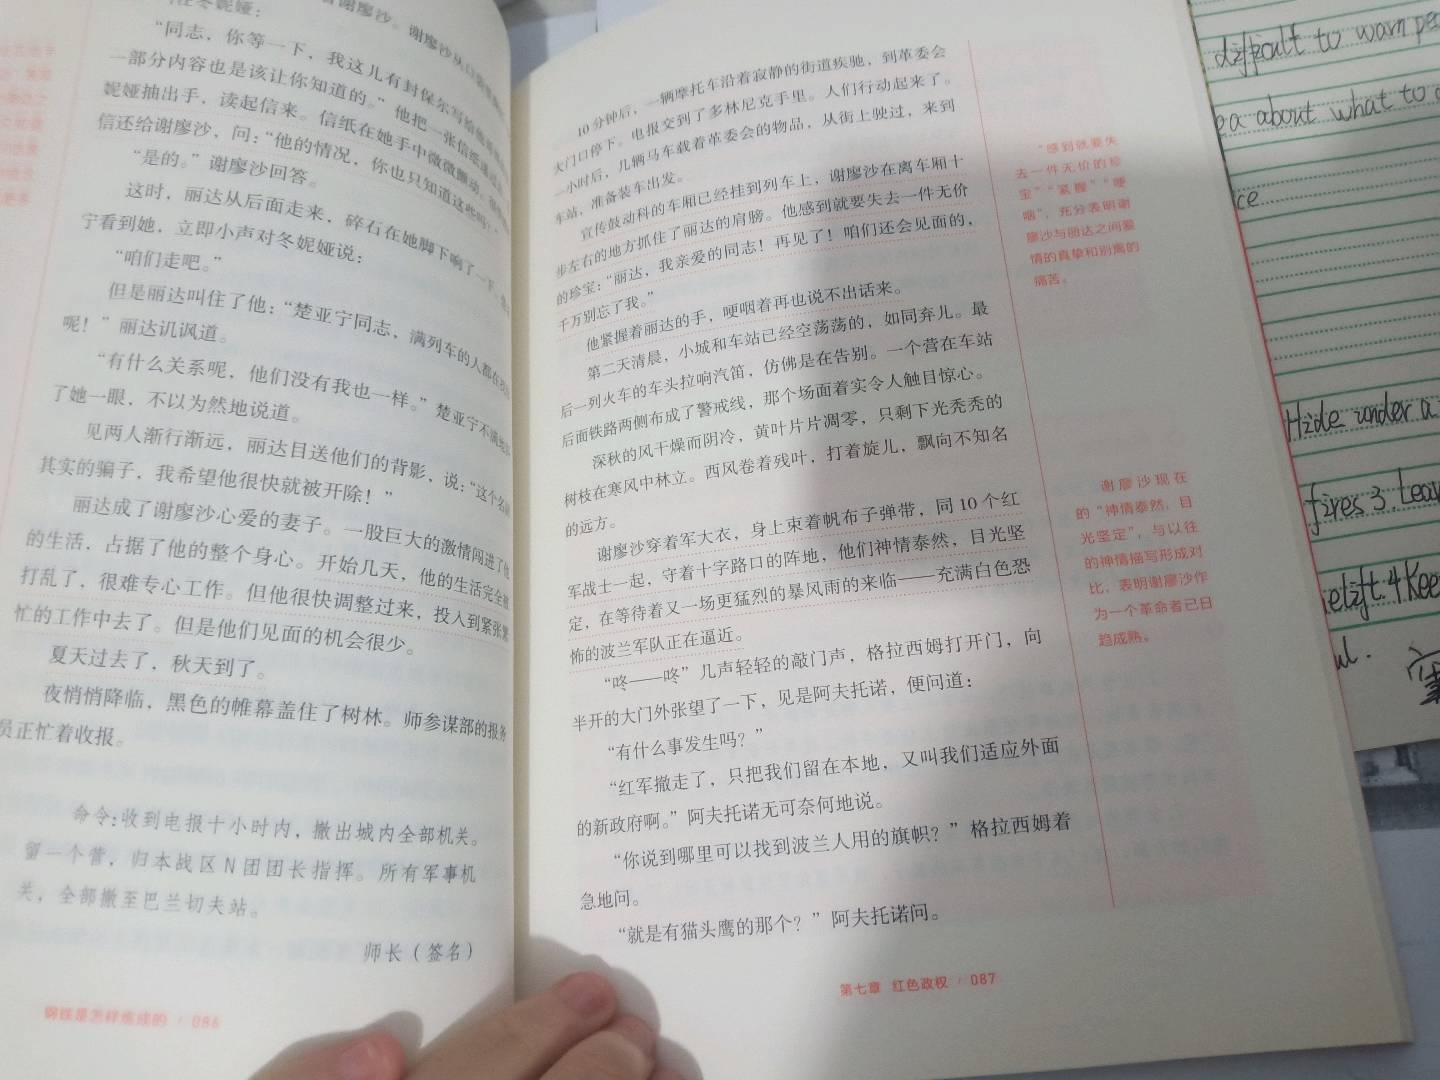 谢廖沙。谢廖沙从口袋里
冬妮娅：
“同志，你等一下，我这儿有封保尔写给
一部分内容也是该让你知道的。”他把一张信纸
妮娅抽出手，读起信来。信纸在她手中微微颤动。
信还给谢廖沙，问：“他的情况，你也只知道这些吗？”
“是的。”谢廖沙回答。
这时，丽达从后面走来，碎石在她脚下响了一下。
宁看到她，立即小声对冬妮娅说：
“咱们走吧。”
但是丽达叫住了他：“楚亚宁同志，满列车的人都在
呢！”丽达讥讽道。
“有什么关系呢，他们没有我也一样。”楚亚宁不满地
了她一眼，不以为然地说道。
见两人渐行渐远，丽达目送他们的背影，说：“这个名副
其实的骗子，我希望他很快就被开除！”
丽达成了谢廖沙心爱的妻子。一股巨大的激情闯进了他
的生活，占据了他的整个身心。开始几天，他的生活完全被
打乱了，很难专心工作。但他很快调整过来，投入到紧张繁
忙的工作中去了。但是他们见面的机会很少。
夏天过去了，秋天到了。
夜悄悄降临，黑色的帷幕盖住了树林。师参谋部的报务
员正忙着收报。
命令：收到电报十小时内，撤出城内全部机关。
留一个营，归本战区N团团长指挥。所有军事机
关，全部撤至巴兰切夫站。
师长（签名）
钢铁是怎样炼成的 / 086
10分钟后，一辆摩托车沿着寂静的街道疾驰，到革委会
大门口停下。电报交到了多林尼克手里。人们行动起来了。
一小时后，几辆马车载着革委会的物品，从街上驶过，来到
车站，准备装车出发。
宣传鼓动科的车厢已经挂到列车上，谢廖沙在离车厢十
步左右的地方抓住了丽达的肩膀。他感到就要失去一件无价
的珍宝：“丽达，我亲爱的同志！再见了！咱们还会见面的，
千万别忘了我。”
他紧握着丽达的手，哽咽着再也说不出话来。
第二天清晨，小城和车站已经空荡荡的，如同弃儿。最
后一列火车的车头拉响汽笛，仿佛是在告别。一个营在车站
后面铁路两侧布成了警戒线，那个场面着实令人触目惊心。
深秋的风干燥而阴冷，黄叶片片凋零，只剩下光秃秃的
树枝在寒风中林立。西风卷着残叶，打着旋儿，飘向不知名
的远方。
谢廖沙穿着军大衣，身上束着帆布子弹带，同10个红
军战士一起，守着十字路口的阵地，他们神情泰然，目光坚
定，在等待着又一场更猛烈的暴风雨的来临——充满白色恐
怖的波兰军队正在逼近。
“咚——咚”几声轻轻的敲门声，格拉西姆打开门，向
半开的大门外张望了一下，见是阿夫托诺，便问道：
“有什么事发生吗？”
“红军撤走了，只把我们留在本地，又叫我们适应外面
的新政府啊。”阿夫托诺无可奈何地说。
“你说到哪里可以找到波兰人用的旗帜？”格拉西姆着
急地问。
“就是有猫头鹰的那个？”阿夫托诺问。
“感到就要失
去一件无价的珍
宝”“紧握”“哽
咽”，充分表明谢
廖沙与丽达之间爱
情的真挚和别离的
痛苦。
谢廖沙现在
的“神情泰然，目
光坚定”，与以往
的神情描写形成对
比，表明谢廖沙作
为一个革命者已日
趋成熟。
第七章 红色政权 / 087
difficult to warn
about what to
Hide under a
fires 3. Leav
4 Kee